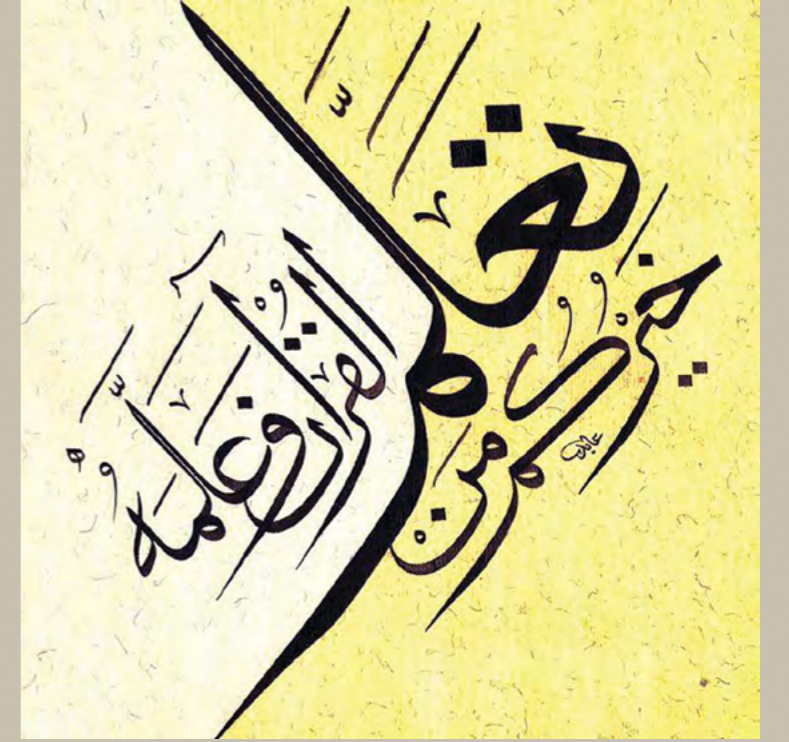 خَيْرُكُمْ مَنْ تَعَلَّمَ
القُرْآنَ وَعَلَّمَهُ